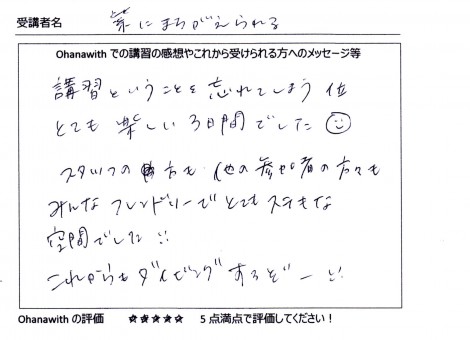 受講者名 葉にまちがえられる
Ohanawith での講習の感想やこれから受けられる方へのメッセージ等
講習ということを忘れてしまう位
とても楽しい3日間でした
スタッフの方も他の参加者の方々も
みんなフレンドリーでとてもステキな
空間でした !!
これからもダイビングするぞー !!
Ohanawith の評価 ★★★★★ 5点満点で評価してください！